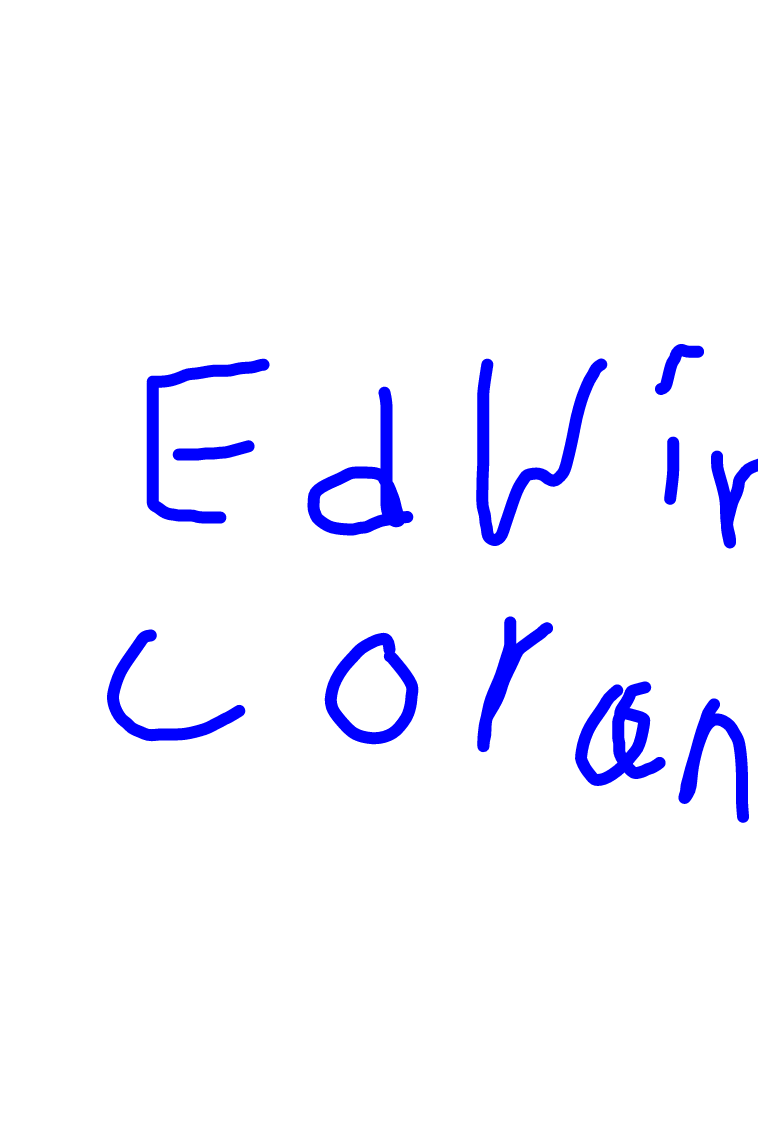 EdWin
coran